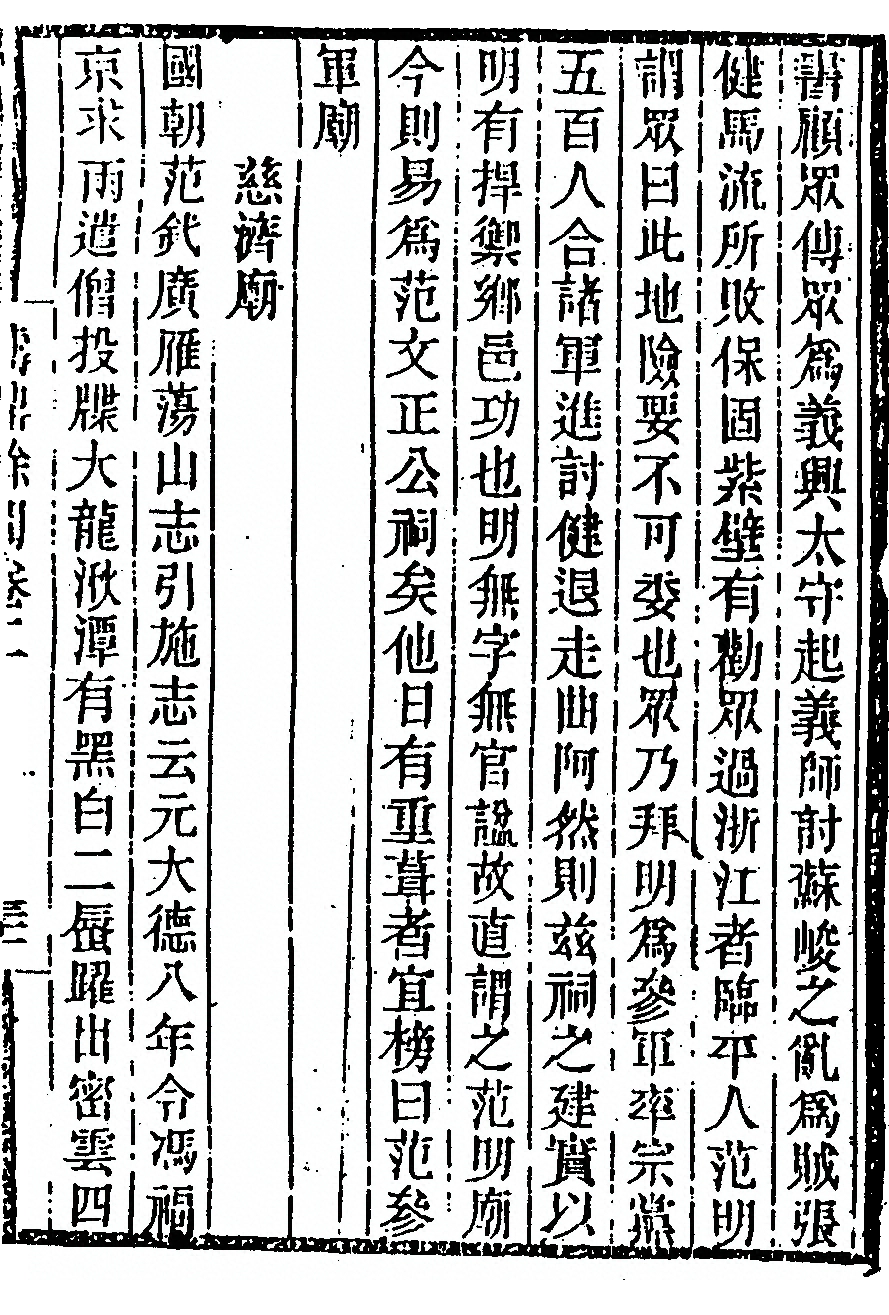 書顧眾傳眾爲義興太守起義師討蘇峻之亂爲賊張
健馬流所敗保固紫壁有勸眾過浙江者臨平人范明
謂眾曰此地險要不可委也眾乃拜明爲參軍率宗黨
五百人合諸軍進討健退走曲阿然則茲祠之建實以
明有捍禦鄉邑功也明無字無官謚故直謂之范明廟
今則易爲范文正公祠矣他日有重葺者宜榜曰范參
軍廟
慈濟廟
國朝范武廣雁蕩山志引施志云元大德八年令馮福
京求雨遣僧投牒大龍湫潭有黑白二蜃躍出密雲四
卷二